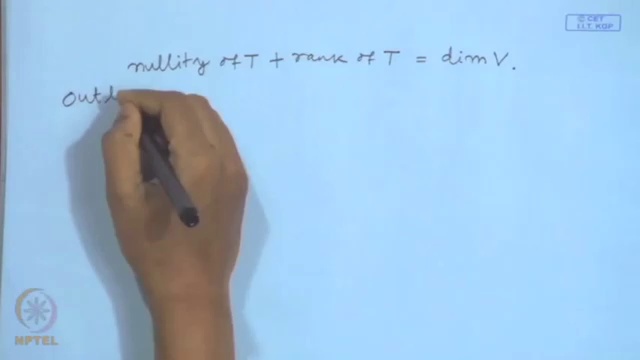 © CET
I.I.T. KGP
nullity of T + rank of T = dim V.
Outl
NPTEL